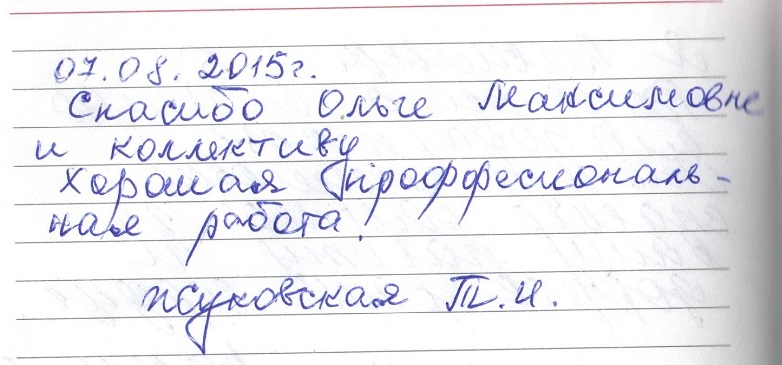 07.08.2015г.
Спасибо Ольге Максимовне
и коллективу
Хорошая проффесиональ-
ная работа.
Жуковская Т.И.